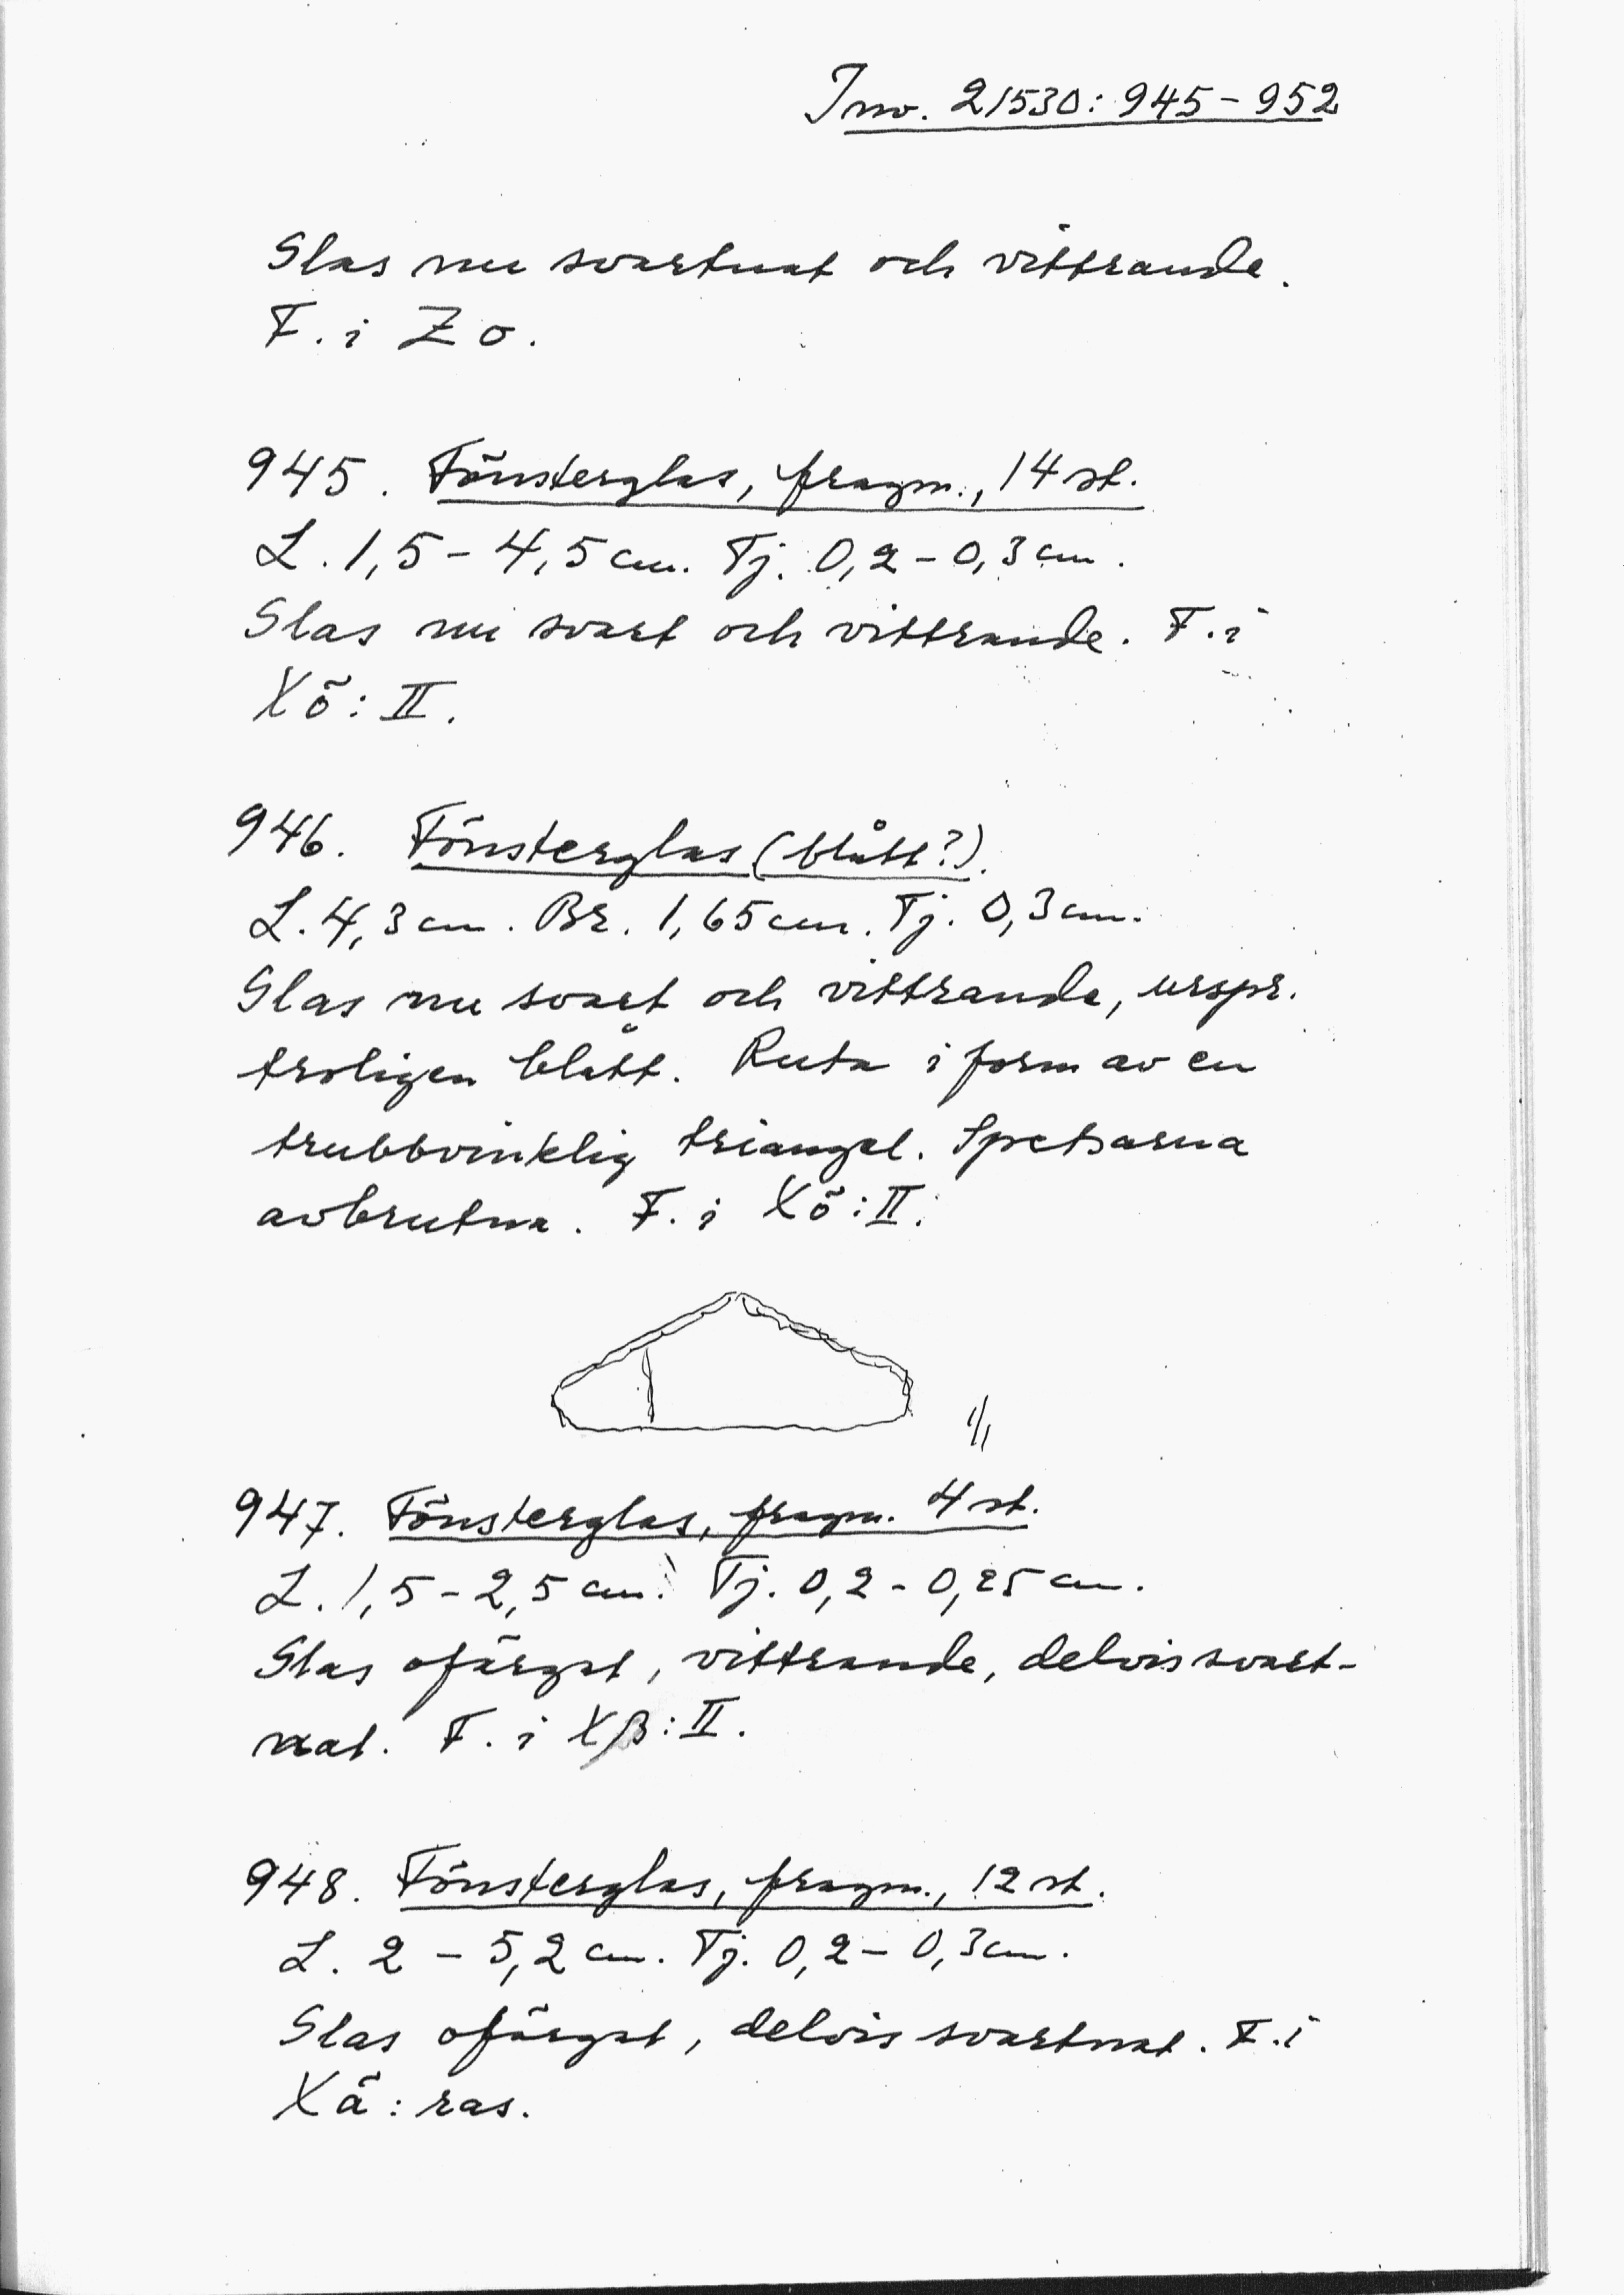 Inv. 21530:945-952
Glas nu svartnat och vittrande.
F. i Zo.
945. Fönsterglas, fragm., 14 st.
L. 1,5-4,5 cm. Tj. 0,2-0,3 cm.
Glas nu svart och vittrande. F. i
Xö:II.
946. Fönsterglas (blått?).
L. 4,3 cm. Br. 1,65 cm. Tj. 0,3 cm.
Glas nu svart och vittrande, urspr.
troligen blått. Ruta i form av en
trubbvinklig triangel. Spetsarna
avbrutna. F. i Xö:II.
1/1
947. Fönsterglas, fragm. 4 st.
L. 1,5-2,5 cm. Tj. 0,2-0,25 cm.
Glas ofärgat, vittrande, delvis svart-
nat. F. i Xβ:II.
948. Fönsterglas, fragm., 12 st.
L. 2-5,2 cm. Tj. 0,2-0,3 cm.
Glas ofärgat, delvis svartnat. F. i
Xä:ras.